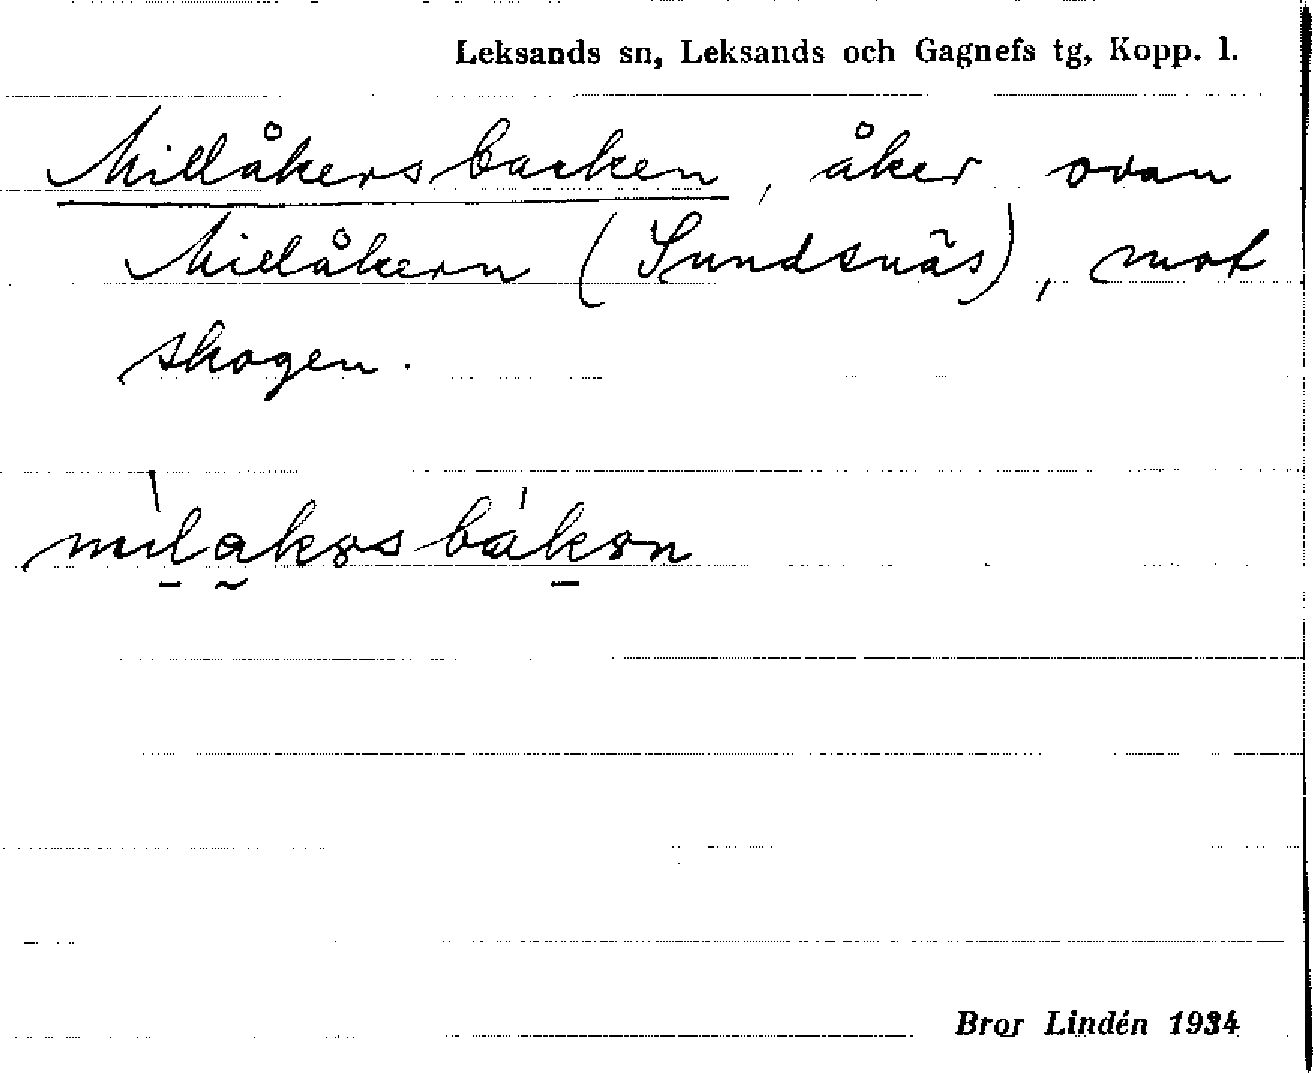 Leksands sn, Leksands och Gagnefs tg, Kopp. l.
Millåkersbacken, åker ovan
Millåkern (Sundsnäs), mot
skogen.
Bror Lindén 1934